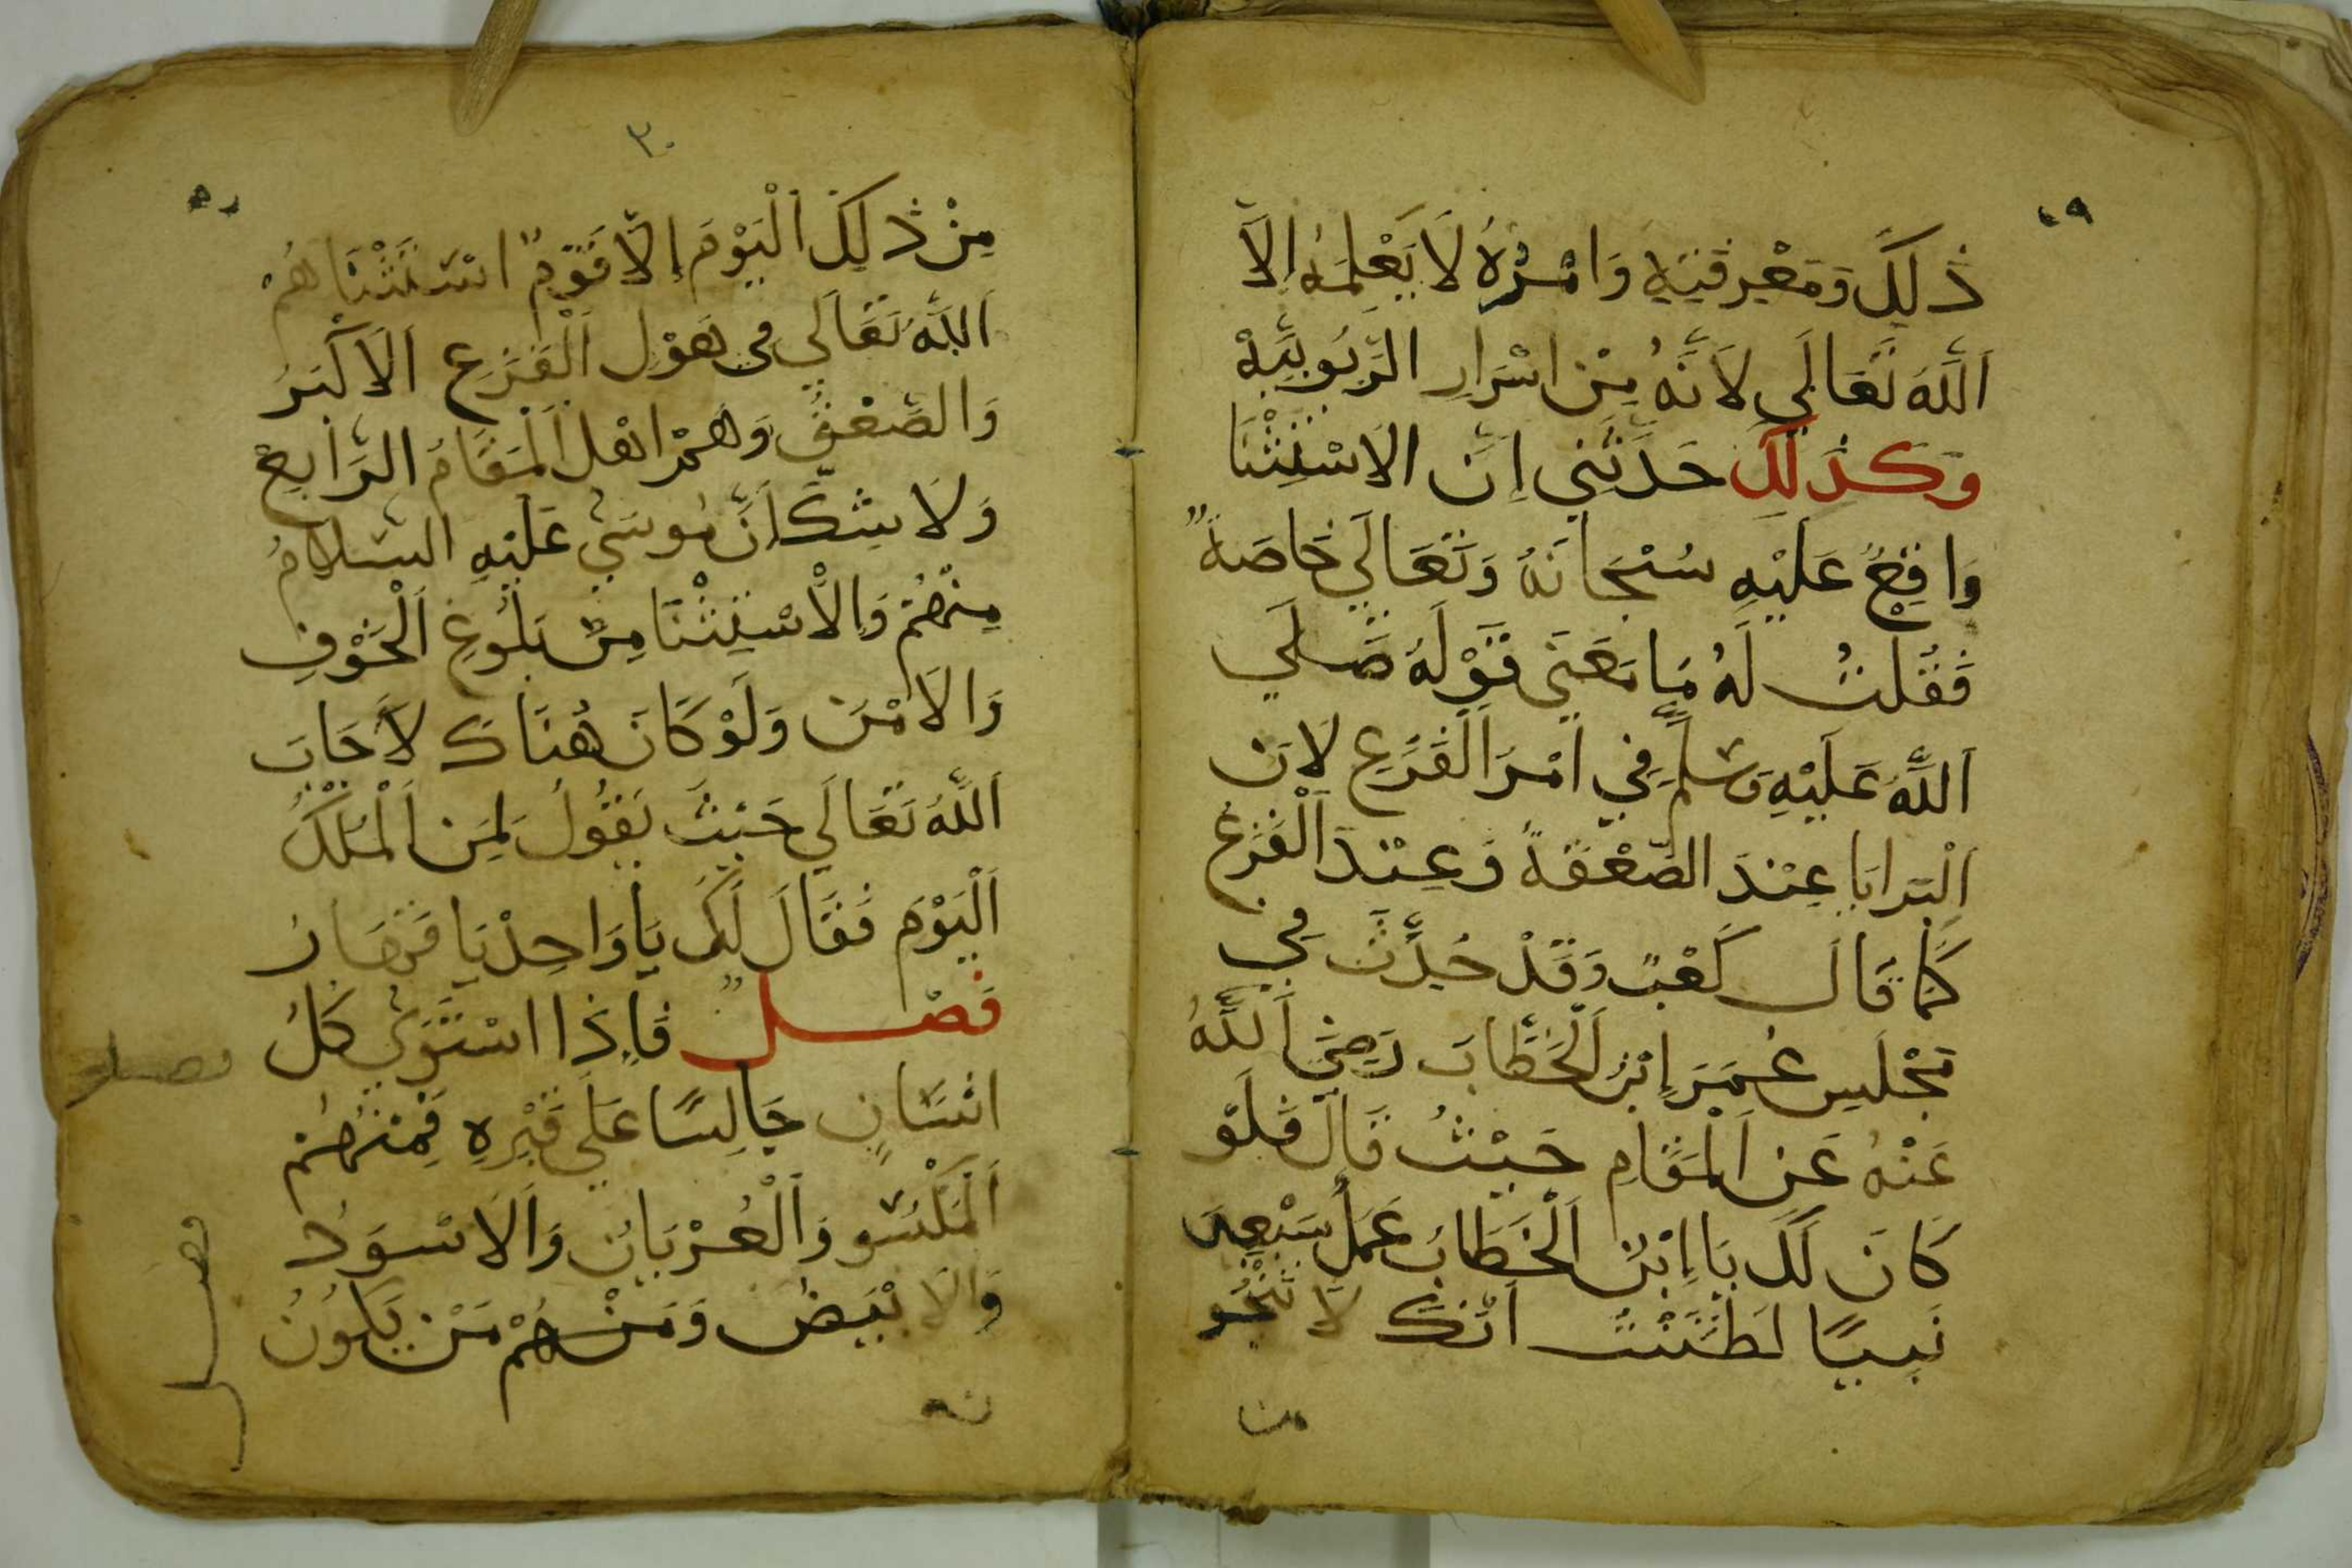 ٤٩
ذٰلِكَ وَمَعْرِفَتِهِ وَامْرُهُ لَا يَعْلَمُهُ اِلَّا
اَللّٰهُ تَعَالَي لَاَنَّهُ مِنْ اسْرَارِ الرَّبُوبِيَّةِ
وَكَذٰلِكَ حَدَثَنِي اِنَّ الَاسْتِثْنَا
وَاقِعٌ عَلَيْهِ سُبْحَانَهُ وَتَعَالَي خَاصَةً
فَقُلْتُ لَهُ مَا مَعْنَي قَوْلَهُ صَلَي
اَللّٰهُ عَلَيْهِ وَسَلَّمَ فِي اَمْرَ اَلْفَزَعِ لَانَ
اَلْبَرايَا عِنْدَ الصَّعْقَةً وَعِنْدَ اَلْفَزَعْ
كَمَا قَالَ كَعْبً وَقَدْ حُدِّثَ فِي
مَجْلَسِ عُمَرَ اِبْنُ اَلْخَطَّابَ رَضِيَ اَللّٰهُ
عَنْهُ عَنِ اَلْمَقَامِ حَيْثُ قَالَ فَلَوْ
كَانَ لَكَ يَا اِبْنُ اَلْخَطَابُ عَمَلُ سَبْعِينَ
نَبِيًا لَظَنَنْتُ اَنَّكَ لَا تَنْجُو
من
٣٠
٥٠
مِنْ ذٰلِكَ اَلْيَوْمَ اِلَّا قَوْمٌ اسْتَثْنَاهُمْ
اَللّٰهُ تَعَالَي فِي هَوْلِ اَلْفَزَعِ اَلَاكْبَرُ
وَالصَّعْقُ وَهُمْ اهْلَ اَلْمَقَامُ الرَّابِعْ
وَلَا شَكَ اَنَّ مُوسَي عَلَيْهِ السَّلَامُ
مِنْهُمْ وَاِلَاسْتِثْنَا مِنْ بَلُوغِ اَلْخَوْفِ
وَالَامْنَ وَلَوْ كَانَ هُنَاكَ لَاَجَابَ
اَللّٰهُ تَعَالَي حَيْثُ يَقُولُ لِمَنِ اَلْمُلْكُ
اَلْيَوْمَ فَقَالَ لَكَ يَا وَاحِدْ يَا قَهَارُ
فَصْلٌ فَاِذَا اسْتَوَي كَلُ
انْسَانٍ جَالِسًا عَلَي قَبْرِهِ فَمِنْهُمْ
اَلْمَكْسُو وَاَلْعُرْيَانُ وَاَلَاسْوَدُ
وَالَابْيَضُ وَمَنْهُمْ مَنْ يَكُونُ
فصل
فصل